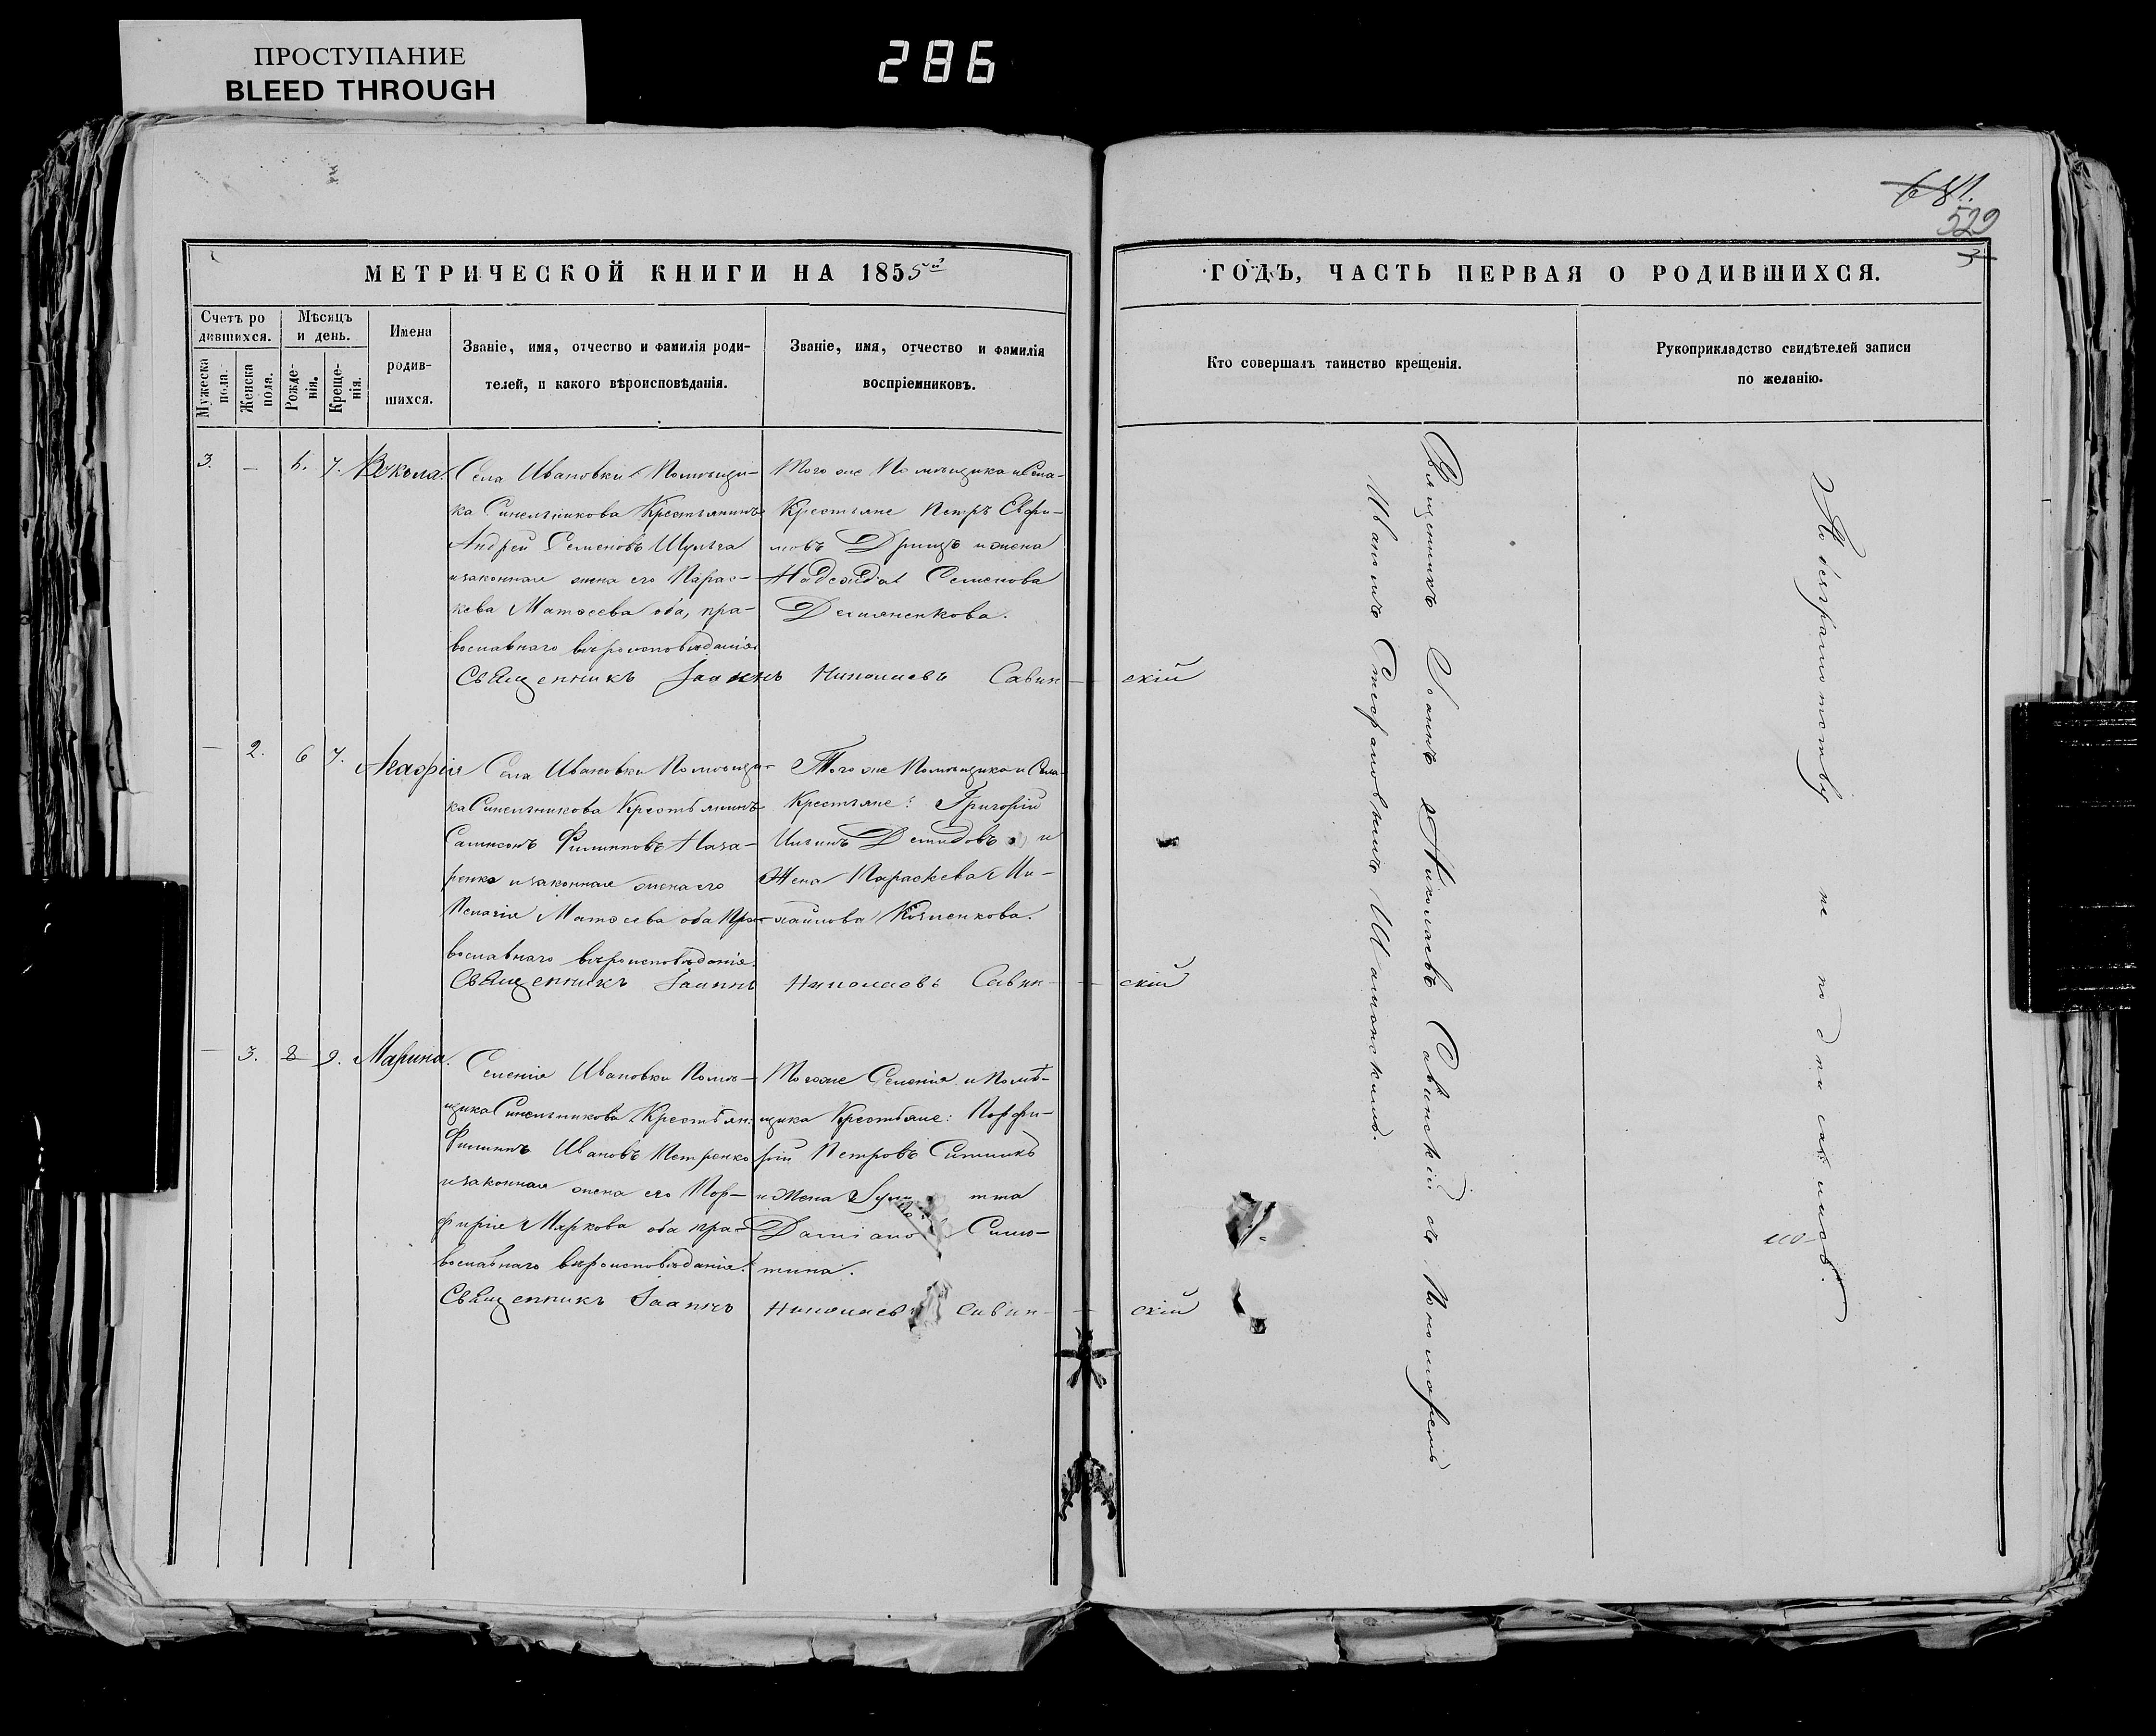 ПРОСТУПАНИЕ
BLEED THROUGH
286
681.
529
3
МЕТРИЧЕСКОЙ КНИГИ НА 1855й
ГОДЪ, ЧАСТЬ ПЕРВАЯ О РОДИВШИХСЯ.
Счетъ ро
дившихся.
Мужеска
пола.
Женска
пола.
Мѣсяцъ
и день.
Рожде-
нія.
Креще-
нія.
Имена
родив-
шихся.
Званіе, имя, отчество и фамилія роди-
телей, и какого вѣроисповѣданія.
Званіе, имя, отчество и фамилія
воспріемниковъ.
Кто совершалъ таинство крещенія.
Рукоприкладство свидѣтелей записи
по желанію.
3. — 6. 7. Вукола.
Села Ивановки Помѣщи-
ка Синельникова Крестьянинъ
Андрей Семеновъ Шульга
и законная жена его Парас-
кева Матѳеева оба, пра-
вославнаго вѣроисповѣданія.
Того же Помѣщика и Села
Крестьяне Петръ Евфи-
мовъ и жена
Надежда Семенова
Демяненкова.
Священникъ Іоаннъ Николаевъ Савин-скій
— 2. 6 7. Агафія
Села Ивановки Помѣщи-
ка Синельникова Крестьянинъ
Сампсонъ Филипповъ Наза-
ренко и законная жена его
Пелагія Матѳеева оба Пра-
вославнаго вѣроисповѣданія.
Того же Помѣщика и Села
Крестьяне: Григорій
Демидовъ и
Жена Параскева Ми-
хайлова
Священникъ Іоаннъ Николаевъ Савин-скій
— 3. 8 9. Марина.
Селенія Ивановки Помѣ-
щика Синельникова Крестьян:
Филиппъ Ивановъ Петренко
и законная жена его Пор-
фирія Маркова оба пра-
вославнаго вѣроисповѣданія.
Тогоже Селенія и Помѣ-
щика Крестьяне: Порфи-
рій Петровъ
и Жена
тина.
Священникъ Іоаннъ Николаевъ Савин-скій
Священникъ Іоаннъ Николаевъ Савинскій съ Пономаремъ
Иваномъ Стефановымъ
По безграмотству не подписались.